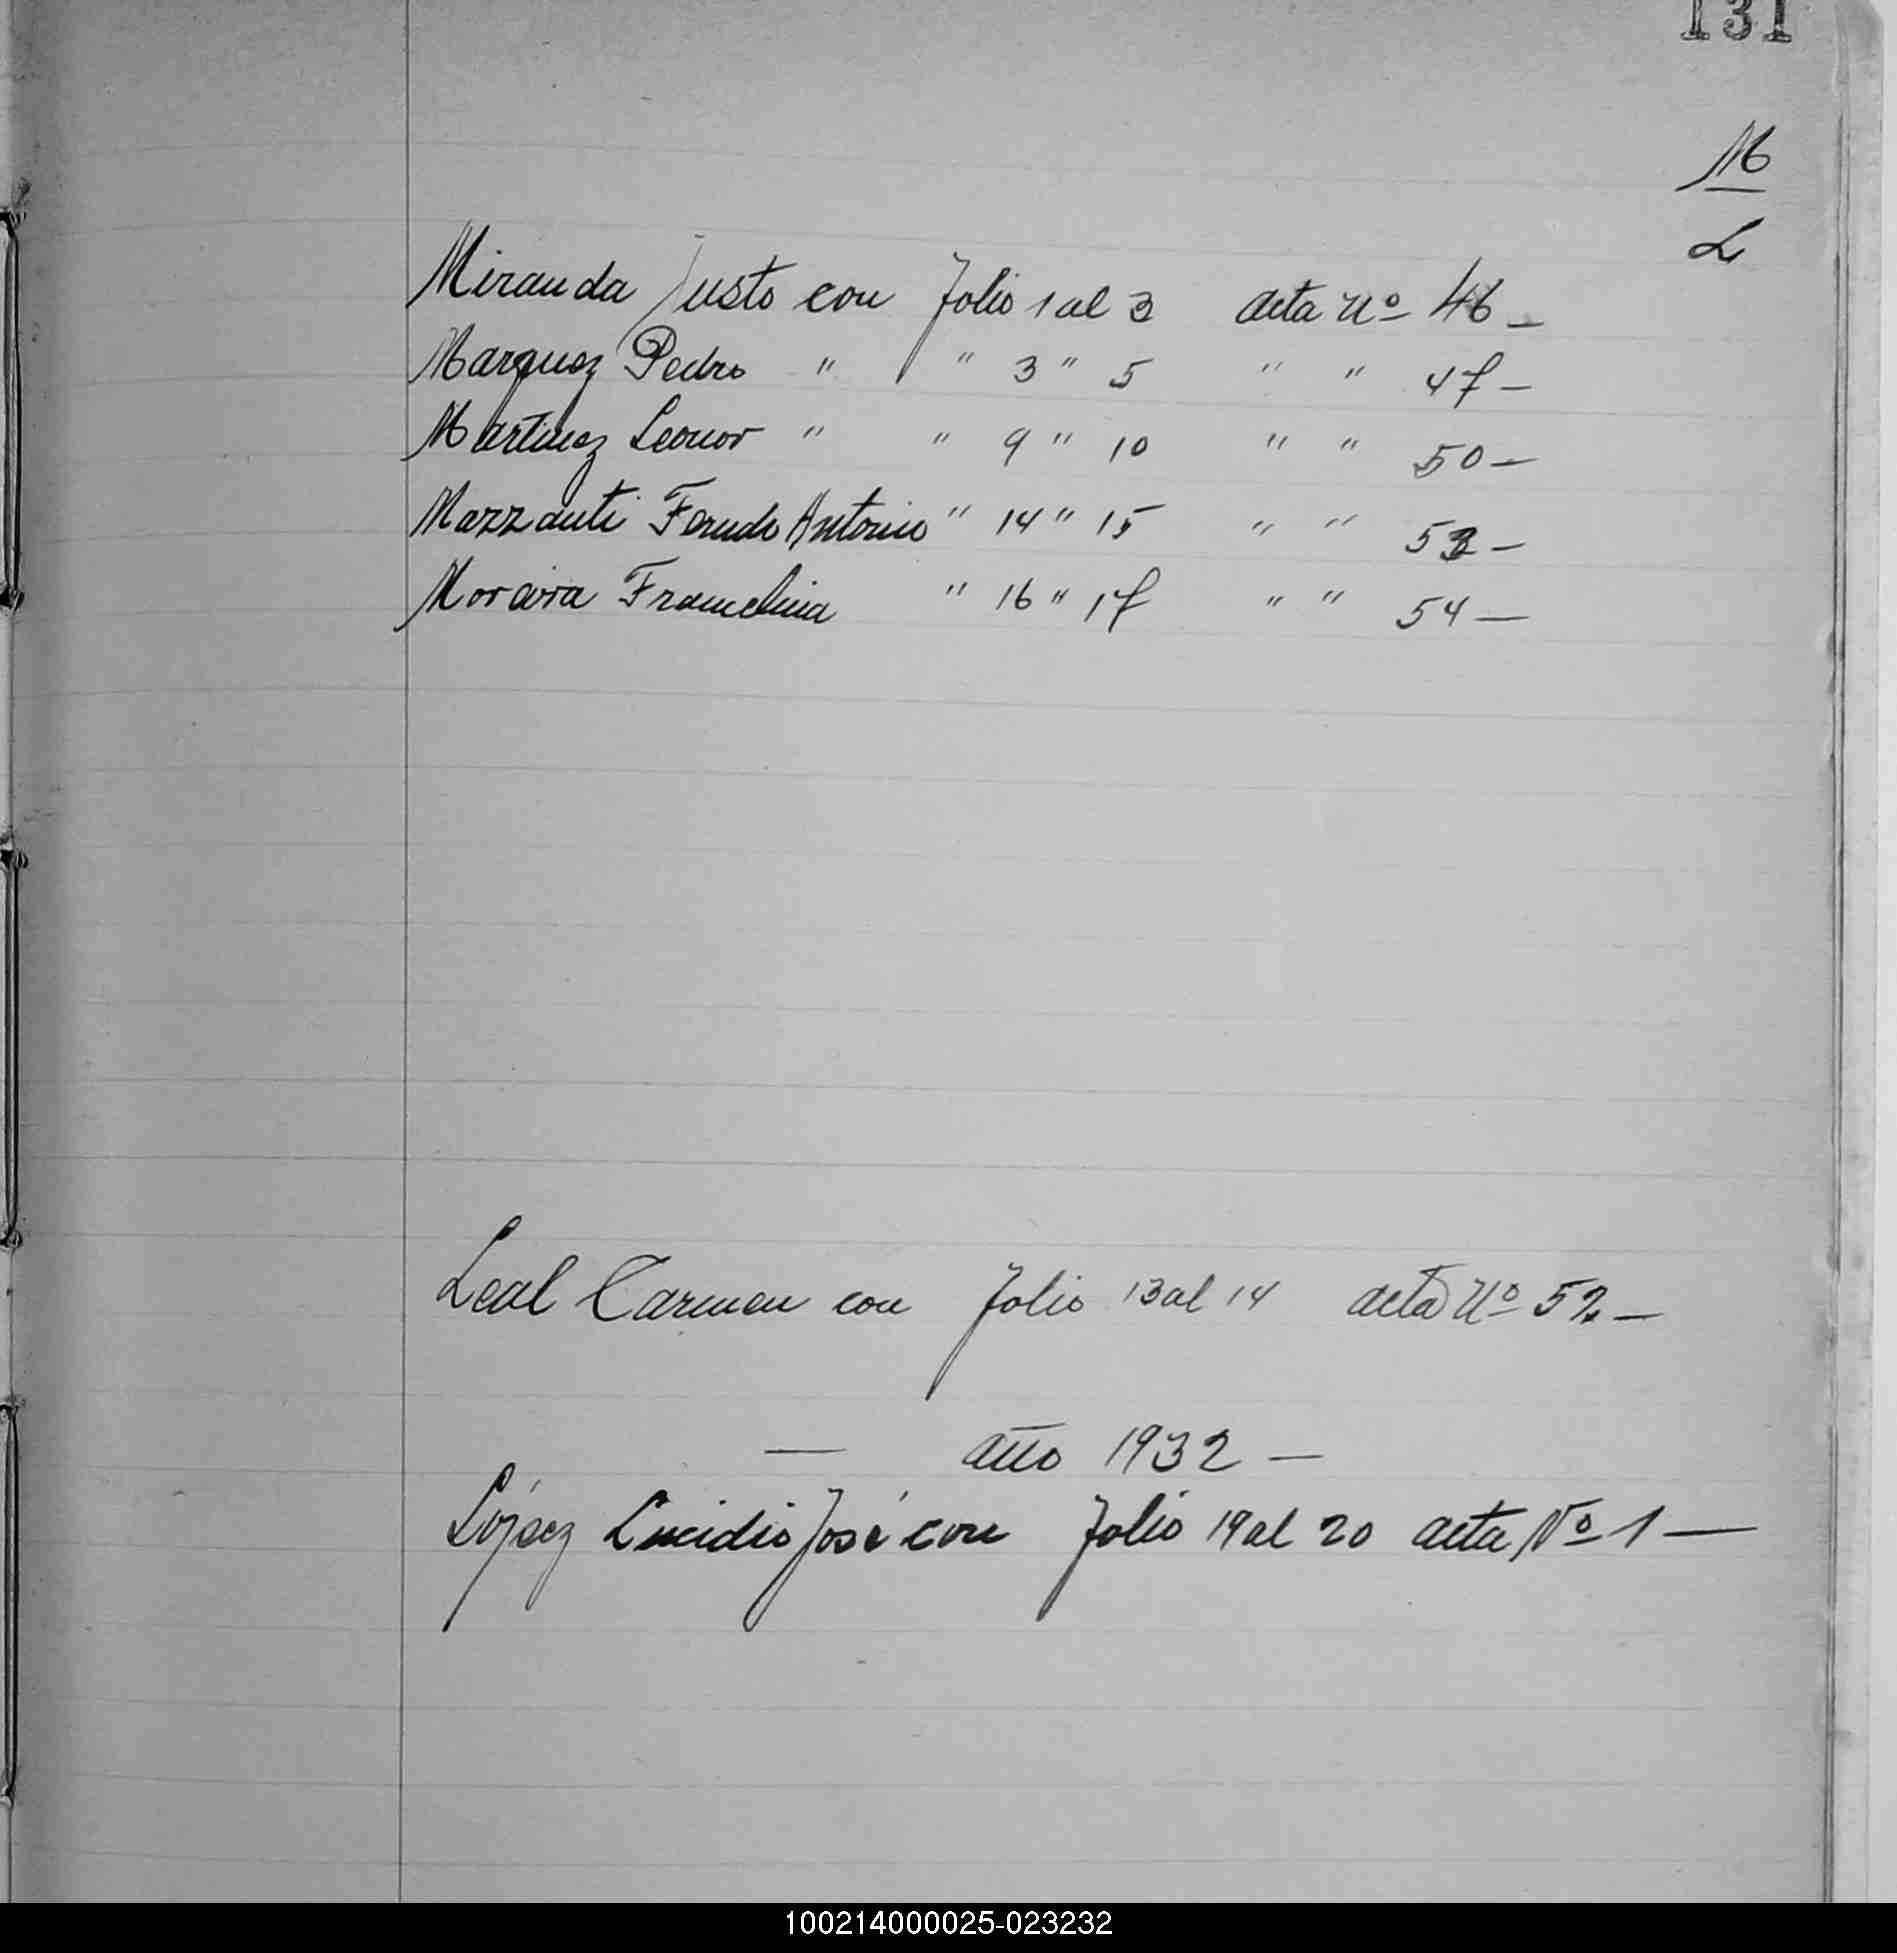 131
M
L
Miranda Justo con folio 1 al 3 acta Nº 46 —
Marquez Pedro " " 3 " 5 " " 47 —
Martinez Leonor " " 9 " 10 " " 50 —
Mazzanti Antonio " 14 " 15 " " 53 —
Moraira " 16 " 17 " " 54 —
Leal Carmen con folio 13 al 14 acta Nº 52 —
— año 1932 —
López Lucidio José con folio 19 al 20 acta Nº 1 —
100214000025-023232